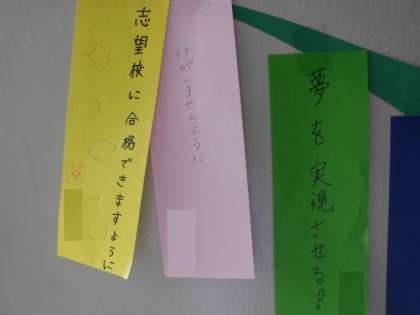 夢を実現させる！
けがしませんように
志望校に合格できますように